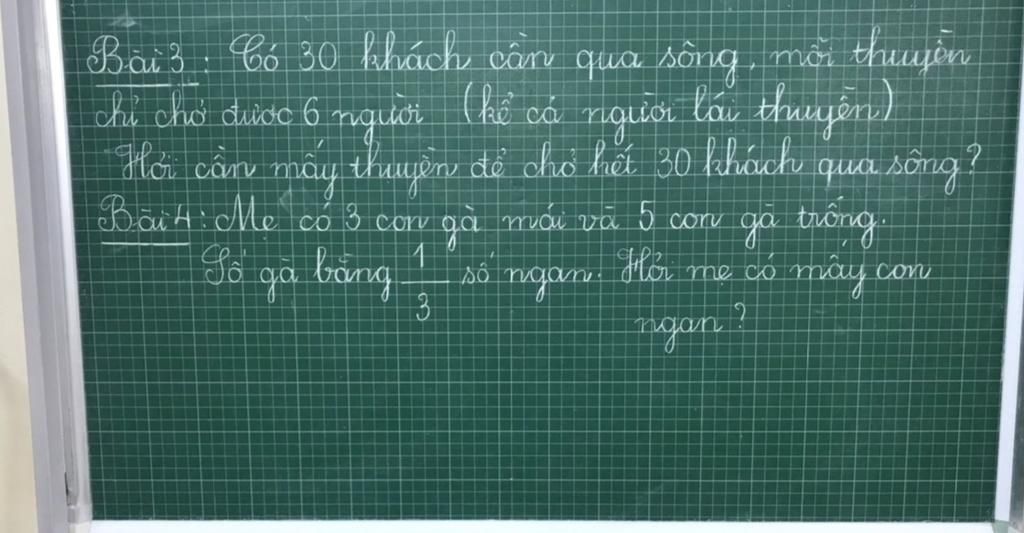 Bài 3 : Có 30 khách cần qua sông, mỗi thuyền
chỉ chở được 6 người (kể cả người lái thuyền)
Hỏi cần mấy thuyền để chở hết 30 khách qua sông?
Bài 4 : Mẹ có 3 con gà mái và 5 con gà trống.
Số gà bằng 1/3 số ngan. Hỏi mẹ có mấy con
ngan ?